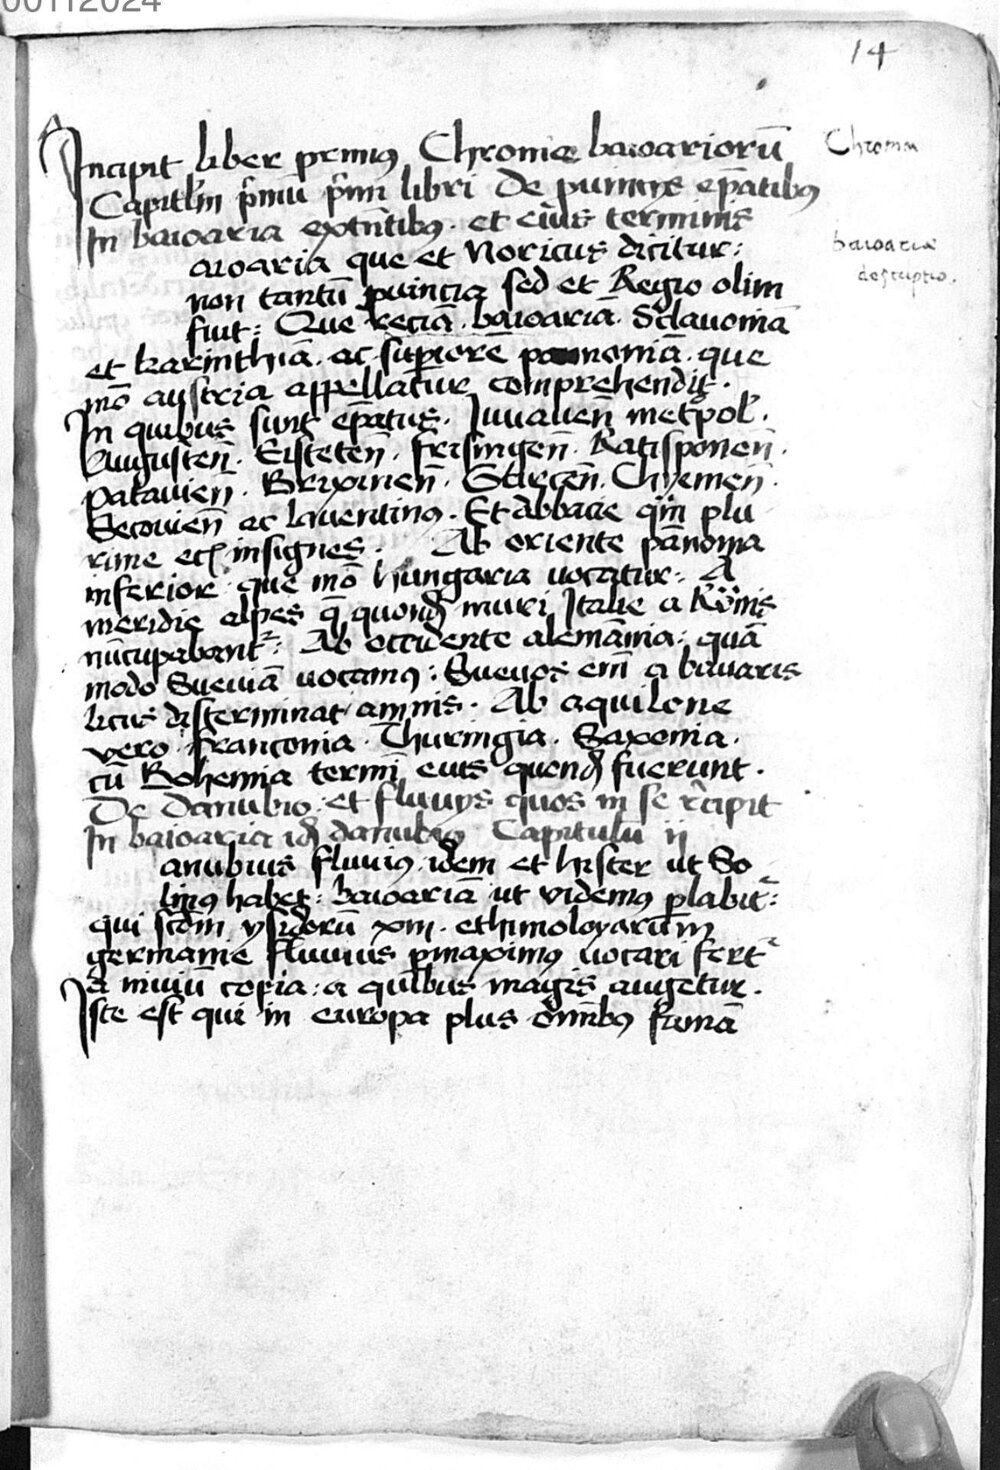 00112024
14
Incipit liber primus Chronicae baioariorū
Chronica
Capitl̄m p̄mū p̄mi libri De puincijs ep̄atibus
In baioaria extn̄tibus. et eius terminis
baioariae
descriptio.
aioaria que et Noricus dicitur:
non tantū puincia sed et Regio olim
fiut: Que reciā. baioariā. Sclauoniā
et karinthiā. ac superiorē pannoniā. que
mō austria appellatur comprehendit.
In quibus sunt ep̄atus. Iuuauien̄ met̄pol.
Augusten̄. Eisteten̄. frisingen̄. Ratisponen̄.
patauien̄. Brixinen̄. Gurcen̄. Chyemen̄.
Secouien̄ ac lauentinus. Et abbacie qm̄ plu
rime insignes. Ab oriente pānonia
inferior que mō hungaria uocatur: A
meridie alpes q̄ quond muri Italie a Romis
nūcupabant: Ab occidente alemānia: quā
modo Sueuiā uocamus: Sueuos em̄ a bauaris
licus disterminat amnis. Ab aquilone
vero. franconia. Thuringia. Saxonia.
cū Bohemia termi eius quond fuerunt.
De danubio: et fluuijs quos in se recipit
In baioaria id danubius Capitulū ij
anubius fluuius idem et hister ut So
linus habet: baioariā ut videmus plabit:
qui scdm ysidorū xiii. ethimoloyarum
germanie fluuius pmaximus uocari fert
a niuiū copia: a quibus magis augetur.
Iste est qui in europa plus om̄ibus famā